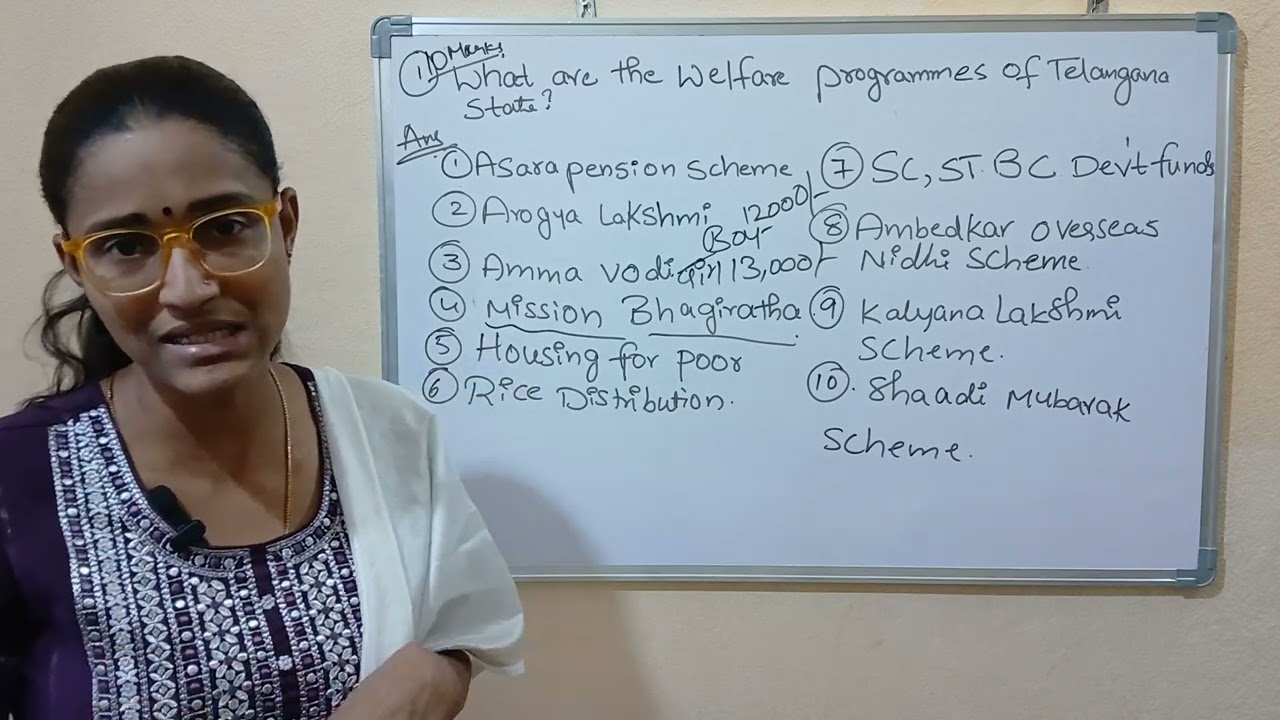 ① 10 Marks
What are the Welfare programmes of Telangana
State?
Ans
① Asara pension scheme
② Arogya Lakshmi
Boy 12000/-
③ Amma vodi Girl 13,000/-
④ Mission Bhagiratha
⑤ Housing for poor
⑥ Rice Distribution.
⑦ SC, ST. BC Dev't funds
⑧ Ambedkar overseas
Nidhi Scheme.
⑨ Kalyana Lakshmi
Scheme.
⑩. Shaadi Mubarak
Scheme.